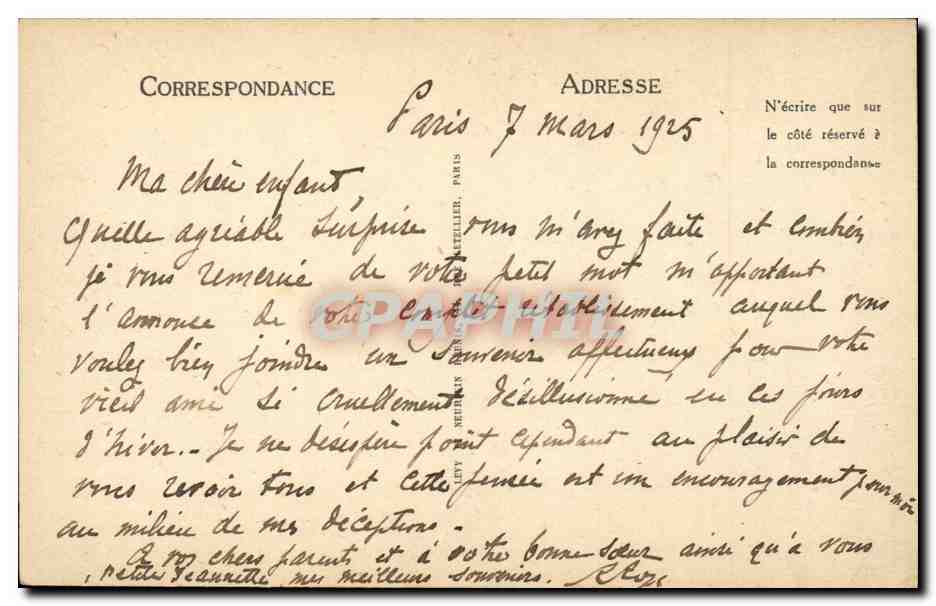 CORRESPONDANCE
ADRESSE
N'écrire que sur
le côté réservé à
la correspondance
Paris 7 mars 1925
Ma chère enfant,
Quelle agréable surprise vous m'avez faite et combien
je vous remercie de votre petit mot m'apportant
l'annonce de votre complet établissement auquel vous
voulez bien joindre un souvenir affectueux pour votre
vieil ami si cruellement désillusionné en ces jours
d'hiver.. Je ne désespère point cependant au plaisir de
vous revoir tous et cette pensée est un encouragement pour moi
au milieu de mes déceptions.
A vos chers parents et à votre bonne sœur ainsi qu'à vous
petite Jeannette, mes meilleurs souvenirs.
LEVY NEURDEIN RÉUNIS, 44, RUE LETELLIER, PARIS
CPAPHIL